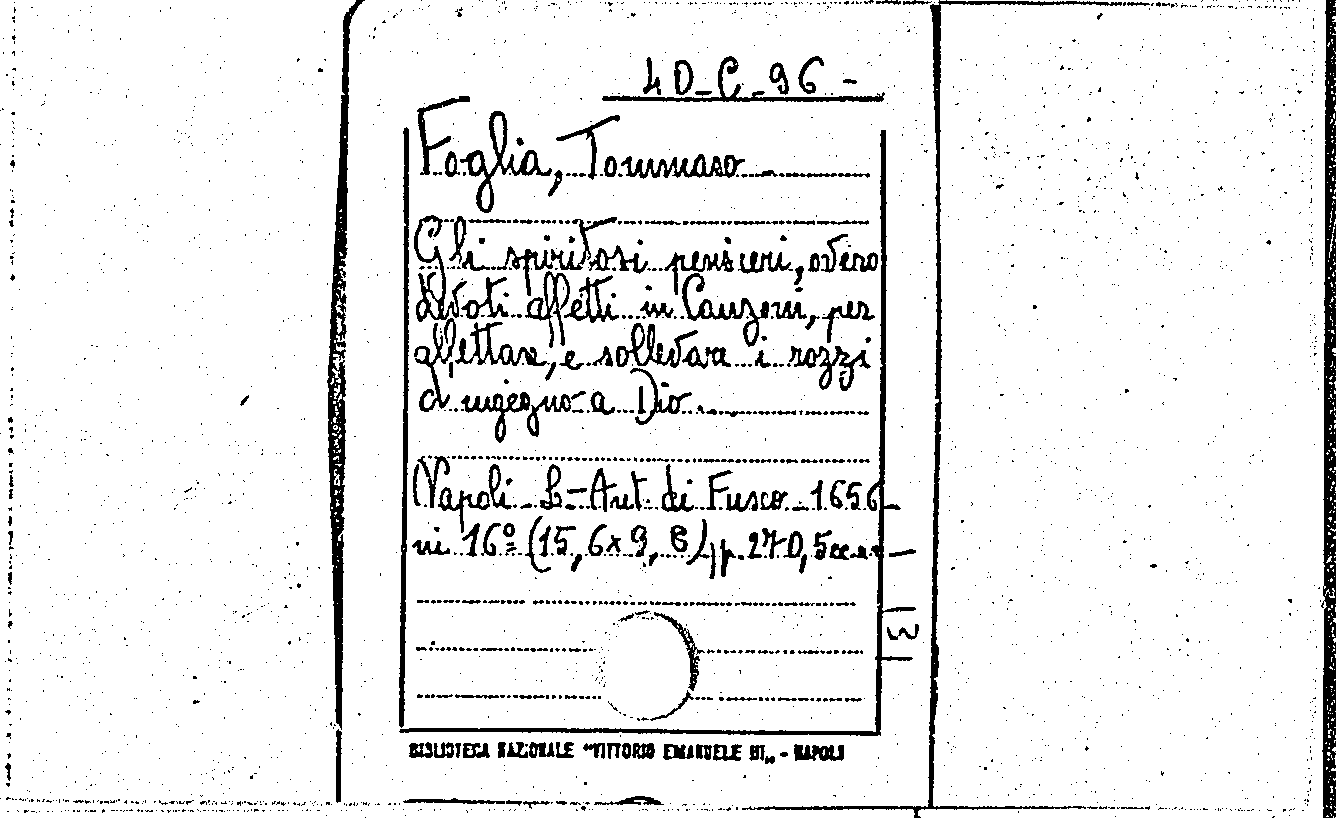 40-C-96-
Foglia, Tommaso -
Gli spiritosi pensieri, overo
devoti affetti in Canzoni, per
allettare, e sollevare i rozzi
d'ingegno a Dio.
Napoli - L-Ant. di Fusco - 1656 -
in 16º (15, 6x9, 8), p. 270, 5
131
BIBLIOTECA NAZIONALE "VITTORIO EMANUELE III„ - NAPOLI